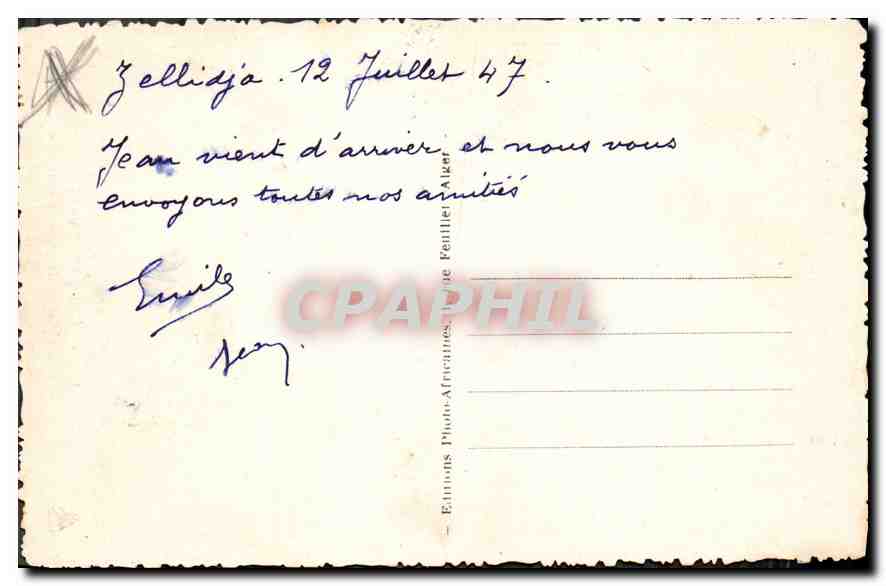 Zellidja . 12 Juillet 47 .
Jean vient d'arriver et nous vous
envoyons toutes nos amitiés
Emile
Jean.
CPAPHIL
— Editions Photo-Africaines, Rue Feuillet Alger